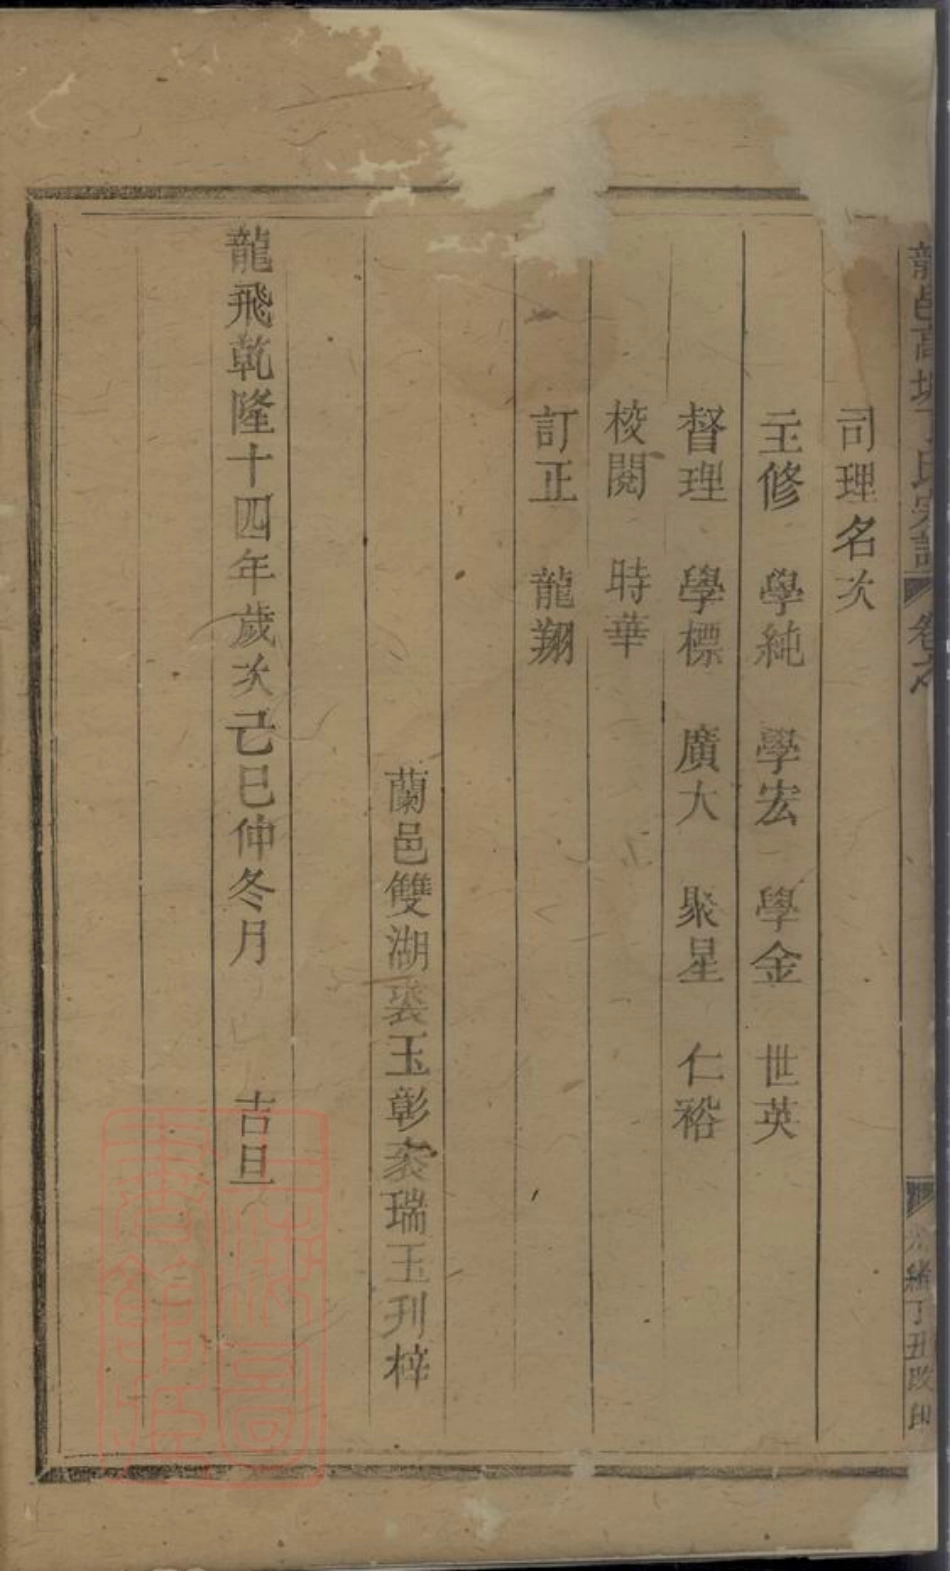 龍邑高塘丁氏宗譜
卷之
光緒丁丑改印
司理名次
主修 學純 學宏 學金 世英
督理 學標 廣大 聚星 仁裕
校閱 時華
訂正 龍翔
蘭邑雙湖裘玉彰裘瑞玉刋梓
龍飛乾隆十四年歲次己巳仲冬月 吉旦